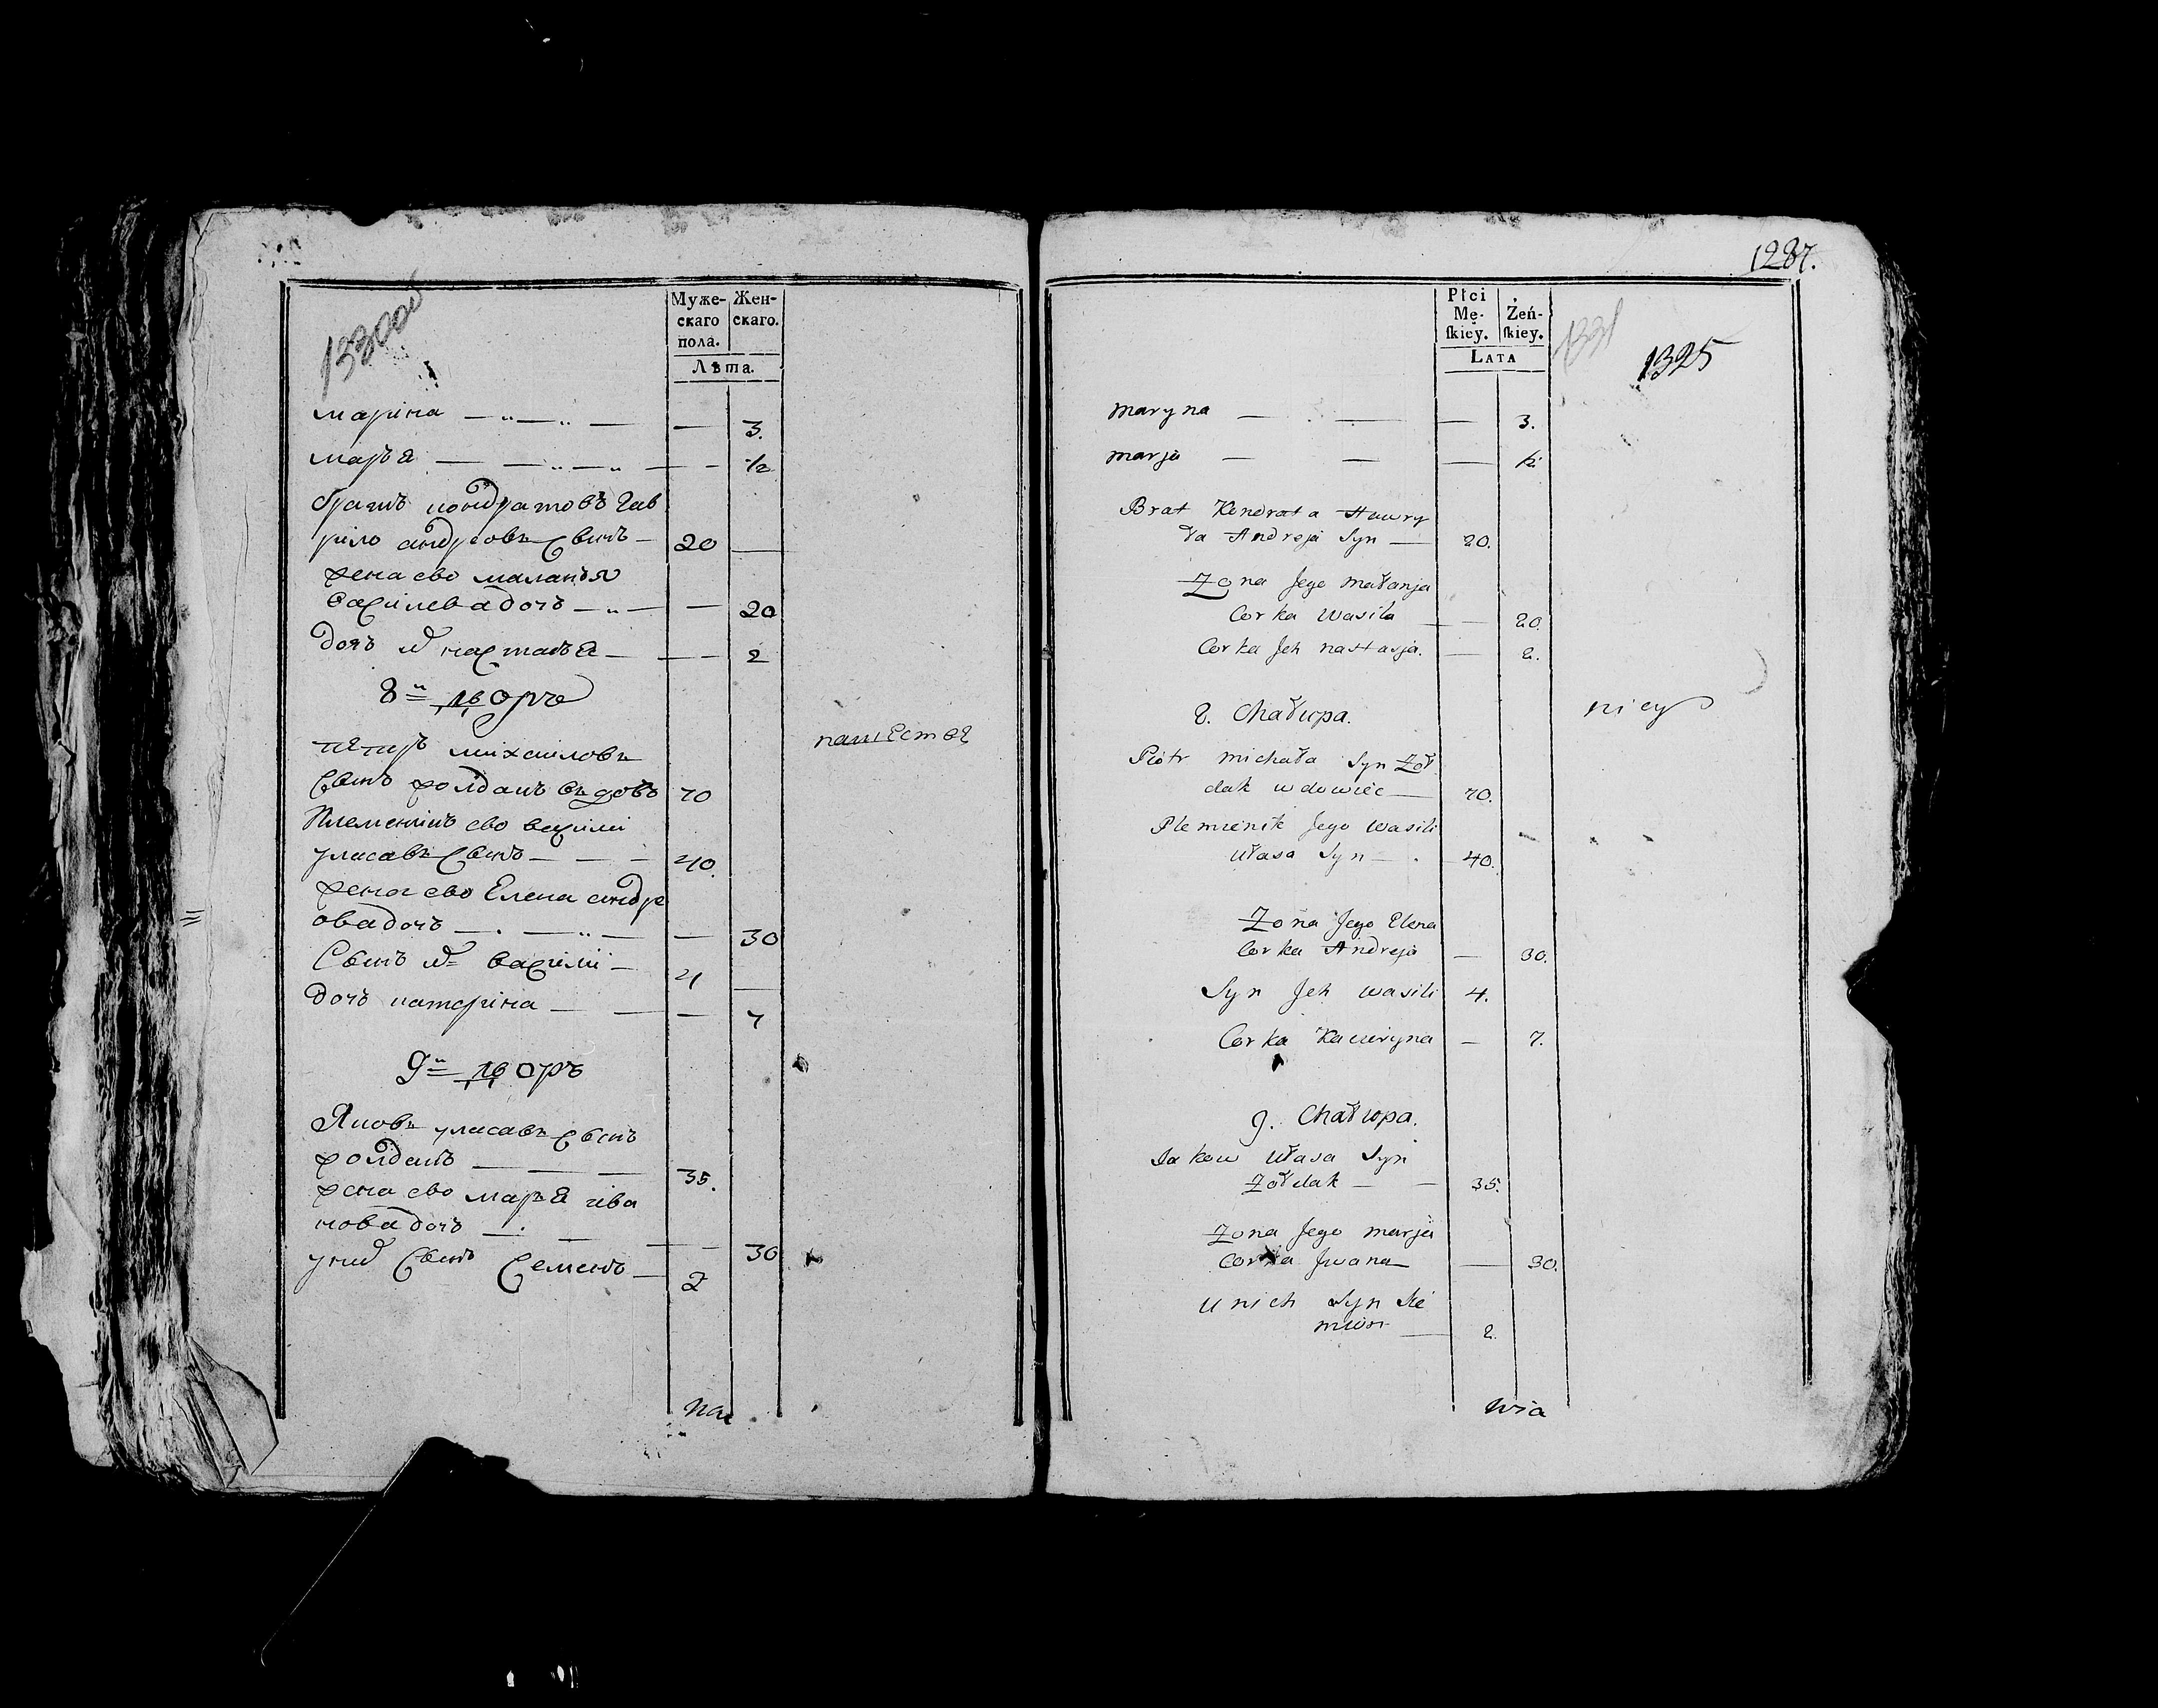 1330об
Муже-
скаго
пола.
Жен-
скаго.
Лѣта.
марiна — — — — 3.
марья — — — — 1/2
братъ кондратовъ гав
рило андреовъ Сынъ — 20 —
жена ево маланья
василева дочъ — — — 20
дочъ их настасья — — 2
8й дворъ
пётръ михаиловъ
Сынъ жолдакъ вдовъ 70
Племеникъ ево василi
уласавъ Сынъ — — 40.
жена ево Елена андре
ова дочъ — — — 30
Сынъ их василiй — 4 —
дочъ катерiна — — 7
9й дворъ
Яковъ уласавъ Сынъ
жолдакъ — — — 35.
жена ево марья ива
нова дочъ — — — 30
у них Сынъ Семенъ — 2
1287.
Płci
Mę-
ſkiey.
Żeń-
ſkiey.
LATA
1331
1325
maryna — — — 3.
marja — — — 1/2
Brat Kondrata Hawry
ła Andreja Syn — 20.
Żona Jego małanja
Corka Wasila — 20.
Corka Jch nastasja. — 2.
8. Chałupa.
Piotr michała Syn Żoł
dak wdowiec — 70.
Plemienik Jego Wasili
Ułasa Syn — 40.
Żona Jego Elena
Corka Andreja — 30.
Syn Jch wasili 4.
Corka Kaciryna — 7.
9. Chałupa.
Jakow Ułasa Syn
Żołdak — — 35.
Żona Jego marja
Corka Jwana — 30.
U nich Syn Sie
mion — 2.